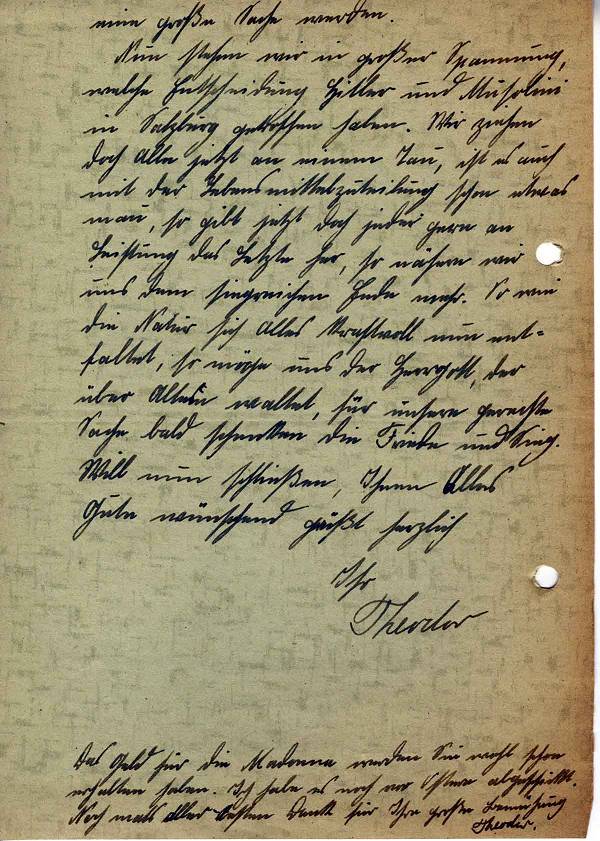 eine große Sache werden.
Nun stehen wir in großer Spannung,
welche Entscheidung Hitler und Musolini
in Salzburg getroffen haben. Wir ziehen
doch Alle jetzt an einem Tau, ist es auch
mit der Lebensmittelzuteilung schon etwas
mau, so gibt jetzt doch jeder gern an
Leistung das Letzte her, so nähern wir
uns dem siegreichen Ende mehr. So wie
die Natur sich Alles kraftvoll nun ent-
faltet, so möge uns der Herrgott, der
über Allem waltet, für unsere gerechte
Sache bald schenken die Friede und Sieg.
Will nun schließen, Ihnen Alles
Gute wünschend grüßt herzlich
Ihr
Theodor
Das Geld für die Madonna werden Sie wohl schon
erhalten haben. Ich habe es noch vor Ostern abgeschickt.
Noch mals aller besten Dank für Ihre große Bemühung
Theodor.